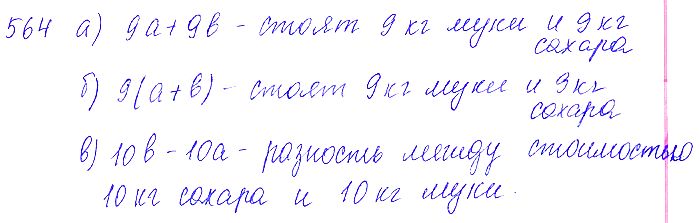 564 а) 9а + 9в - стоят 9 кг муки и 9 кг
сахара
б) 9(а+в) - стоят 9 кг муки и 9 кг
сахара
в) 10в - 10а - разность между стоимостью
10 кг сахара и 10 кг муки.